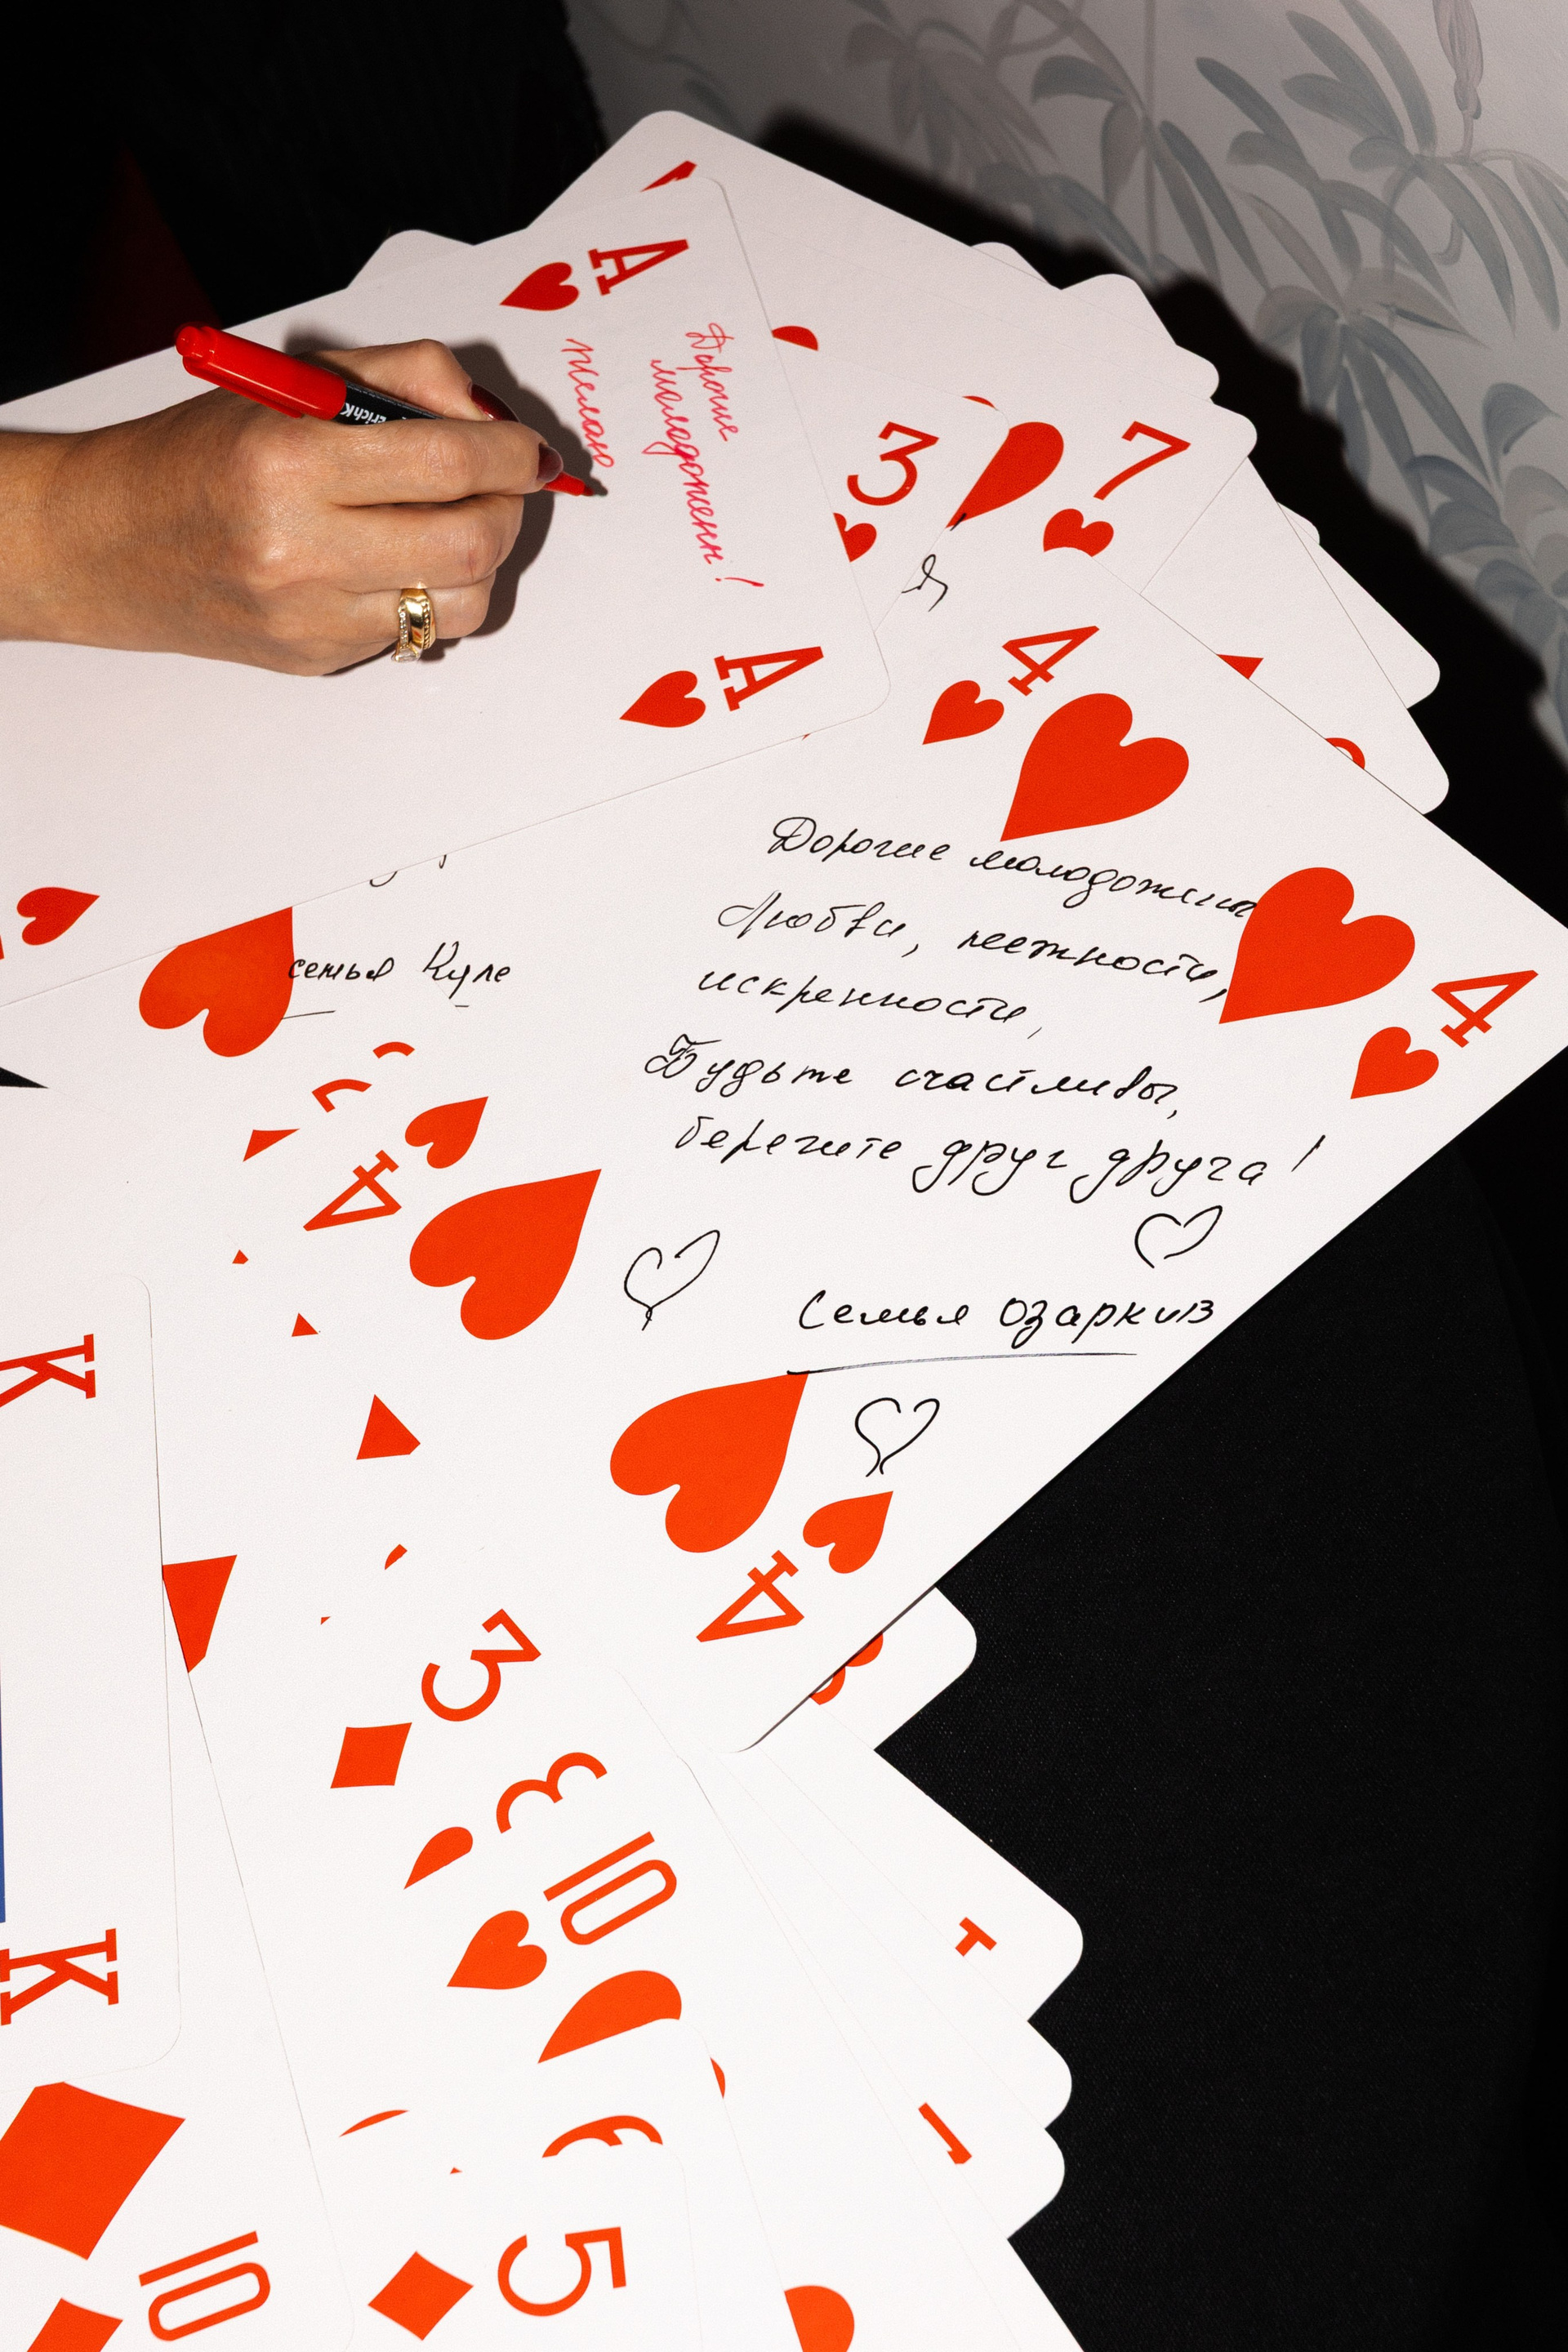 A
Дорогие
молодожены!
желаю
A
3
7
Я
4
Дорогие молодожены
Любви, нежности,
искренности,
Будьте счастливы,
берегите друг друга!
Семья Озаркив
4
семья Куле
4
4
K
K
3
10
5
10